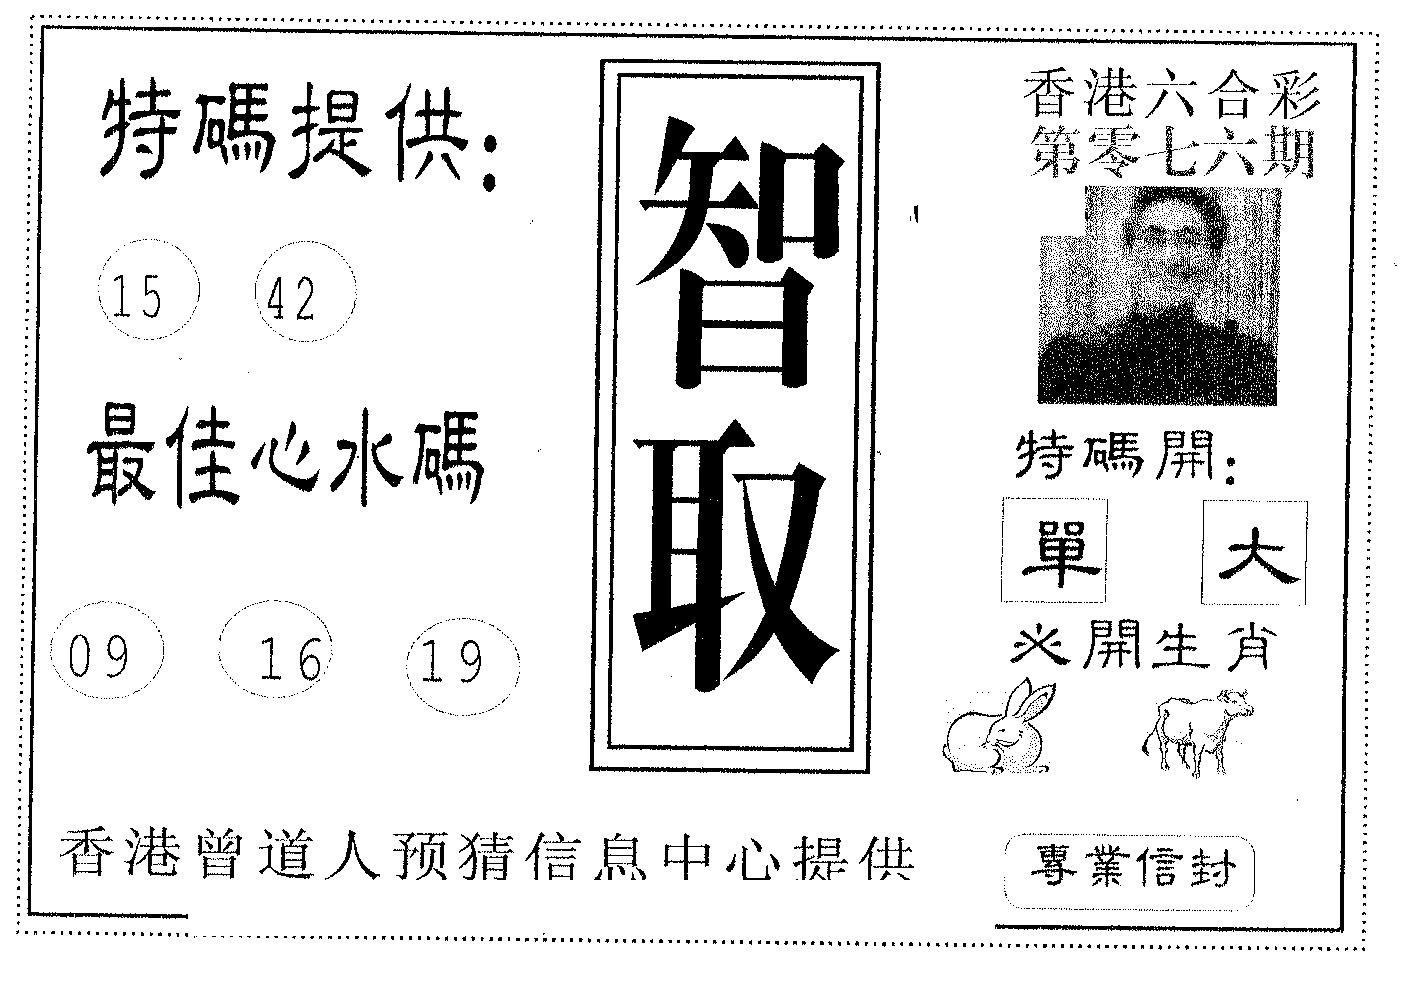 特碼提供:
15 42
最佳心水碼
09 16 19
智取
香港六合彩
第零七六期
特碼開:
單 大
必開生肖
香港曾道人预猜信息中心提供
專業信封